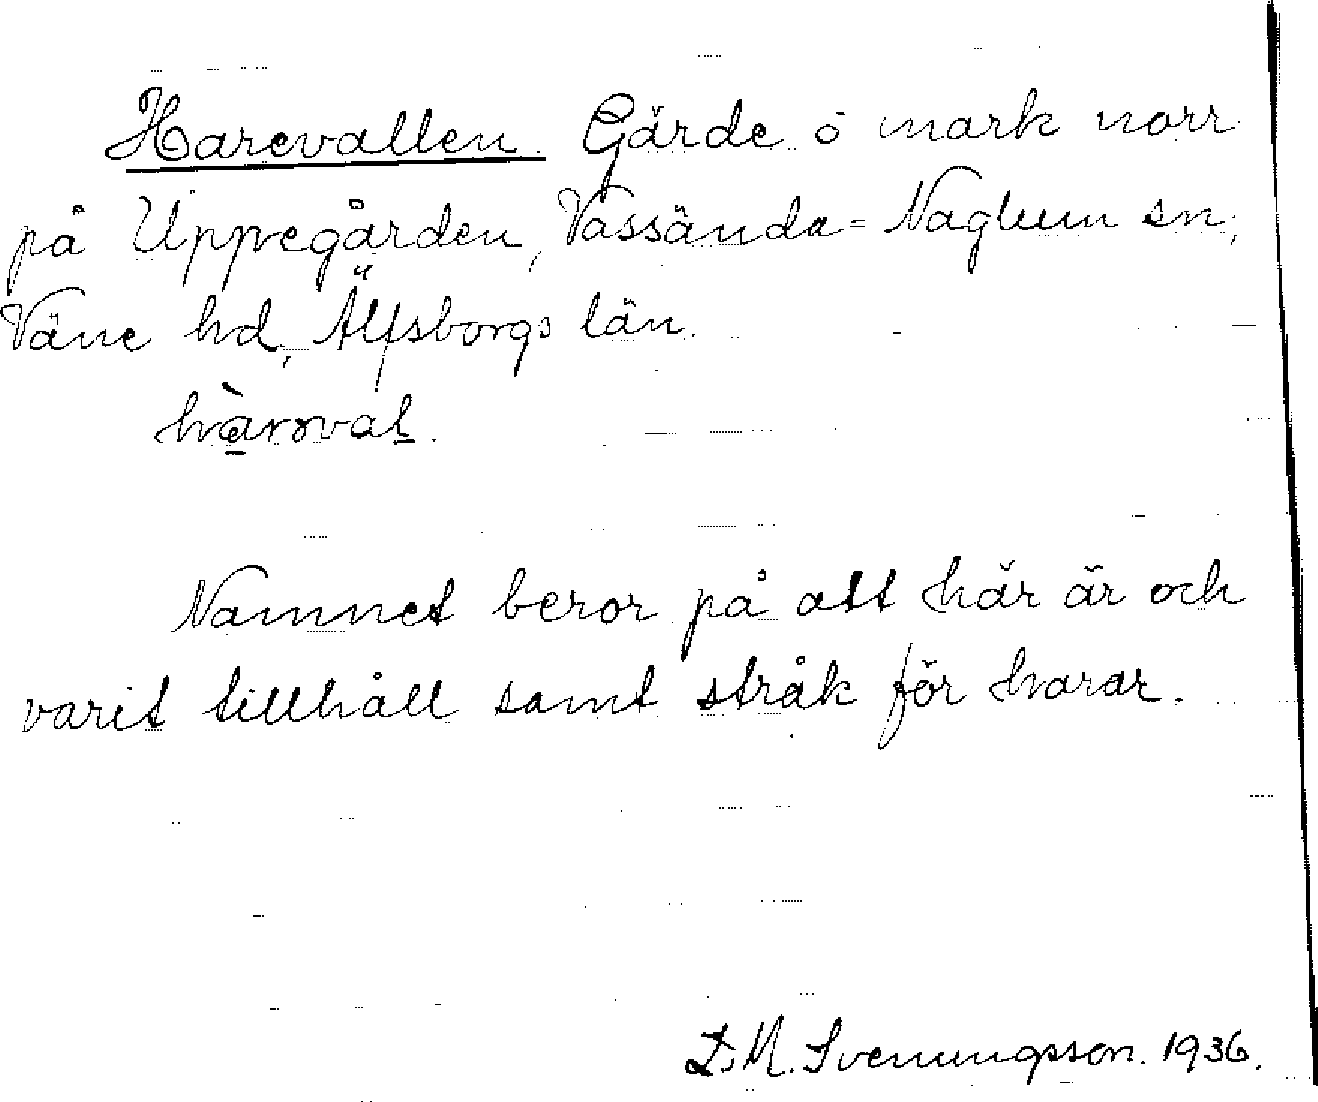 Harevallen. Gärde o mark norr
på Uppegården, Vassända=Naglum sn,
Väne hd, Älfsborgs län.
hàrəval.
Namnet beror på att här är och
varit tillhåll samt stråk för harar.
D. M. Svenungsson. 1936.